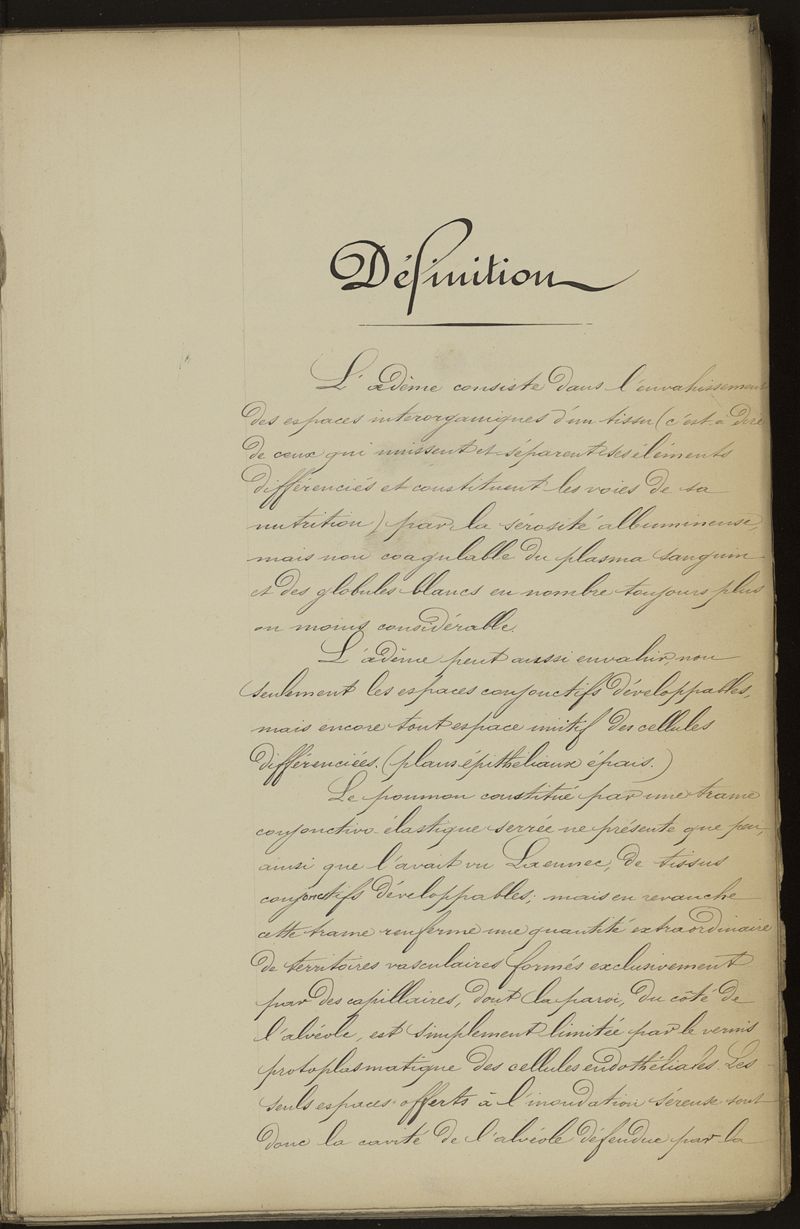 Définition
L'œdème consiste dans l'envahissement
des espaces interorganiques d'un tissu (c'est à dire
de ceux qui unissent et séparent ses éléments
différenciés et constituent les voies de sa
nutrition) par la sérosité albumineuse,
mais non coagulable du plasma sanguin
et des globules blancs en nombre toujours plus
ou moins considérable.
L'œdème peut aussi envahir, non
seulement les espaces conjonctifs développables,
mais encore tout espace unitif des cellules
différenciées. (plans épithéliaux épais.)
Le poumon constitué par une trame
conjonctivo-élastique serrée ne présente que peu,
ainsi que l'avait vu Laennec, de tissus
conjonctifs développables; mais en revanche
cette trame renferme une quantité extraordinaire
de territoires vasculaires formés exclusivement
par des capillaires, dont la paroi, du côté de
l'alvéole, est simplement limitée par le vernis
protoplasmatique des cellules endothéliales. Les
seuls espaces offerts à l'inondation séreuse sont
donc la cavité de l'alvéole défendue par la